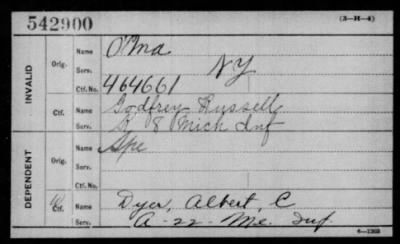 542900
(3-H-4)
INVALID
Orig. Name O'Ma
Serv. NY
Ctf. No. 464661
Ctf. Name Godfrey Russell
Serv. 8 Mich Inf
DEPENDENT
Orig. Name Ape
Serv.
Ctf. No.
Ctf. Name Dyer, Albert, C
Serv. A-22-Me. Inf.
6-1203